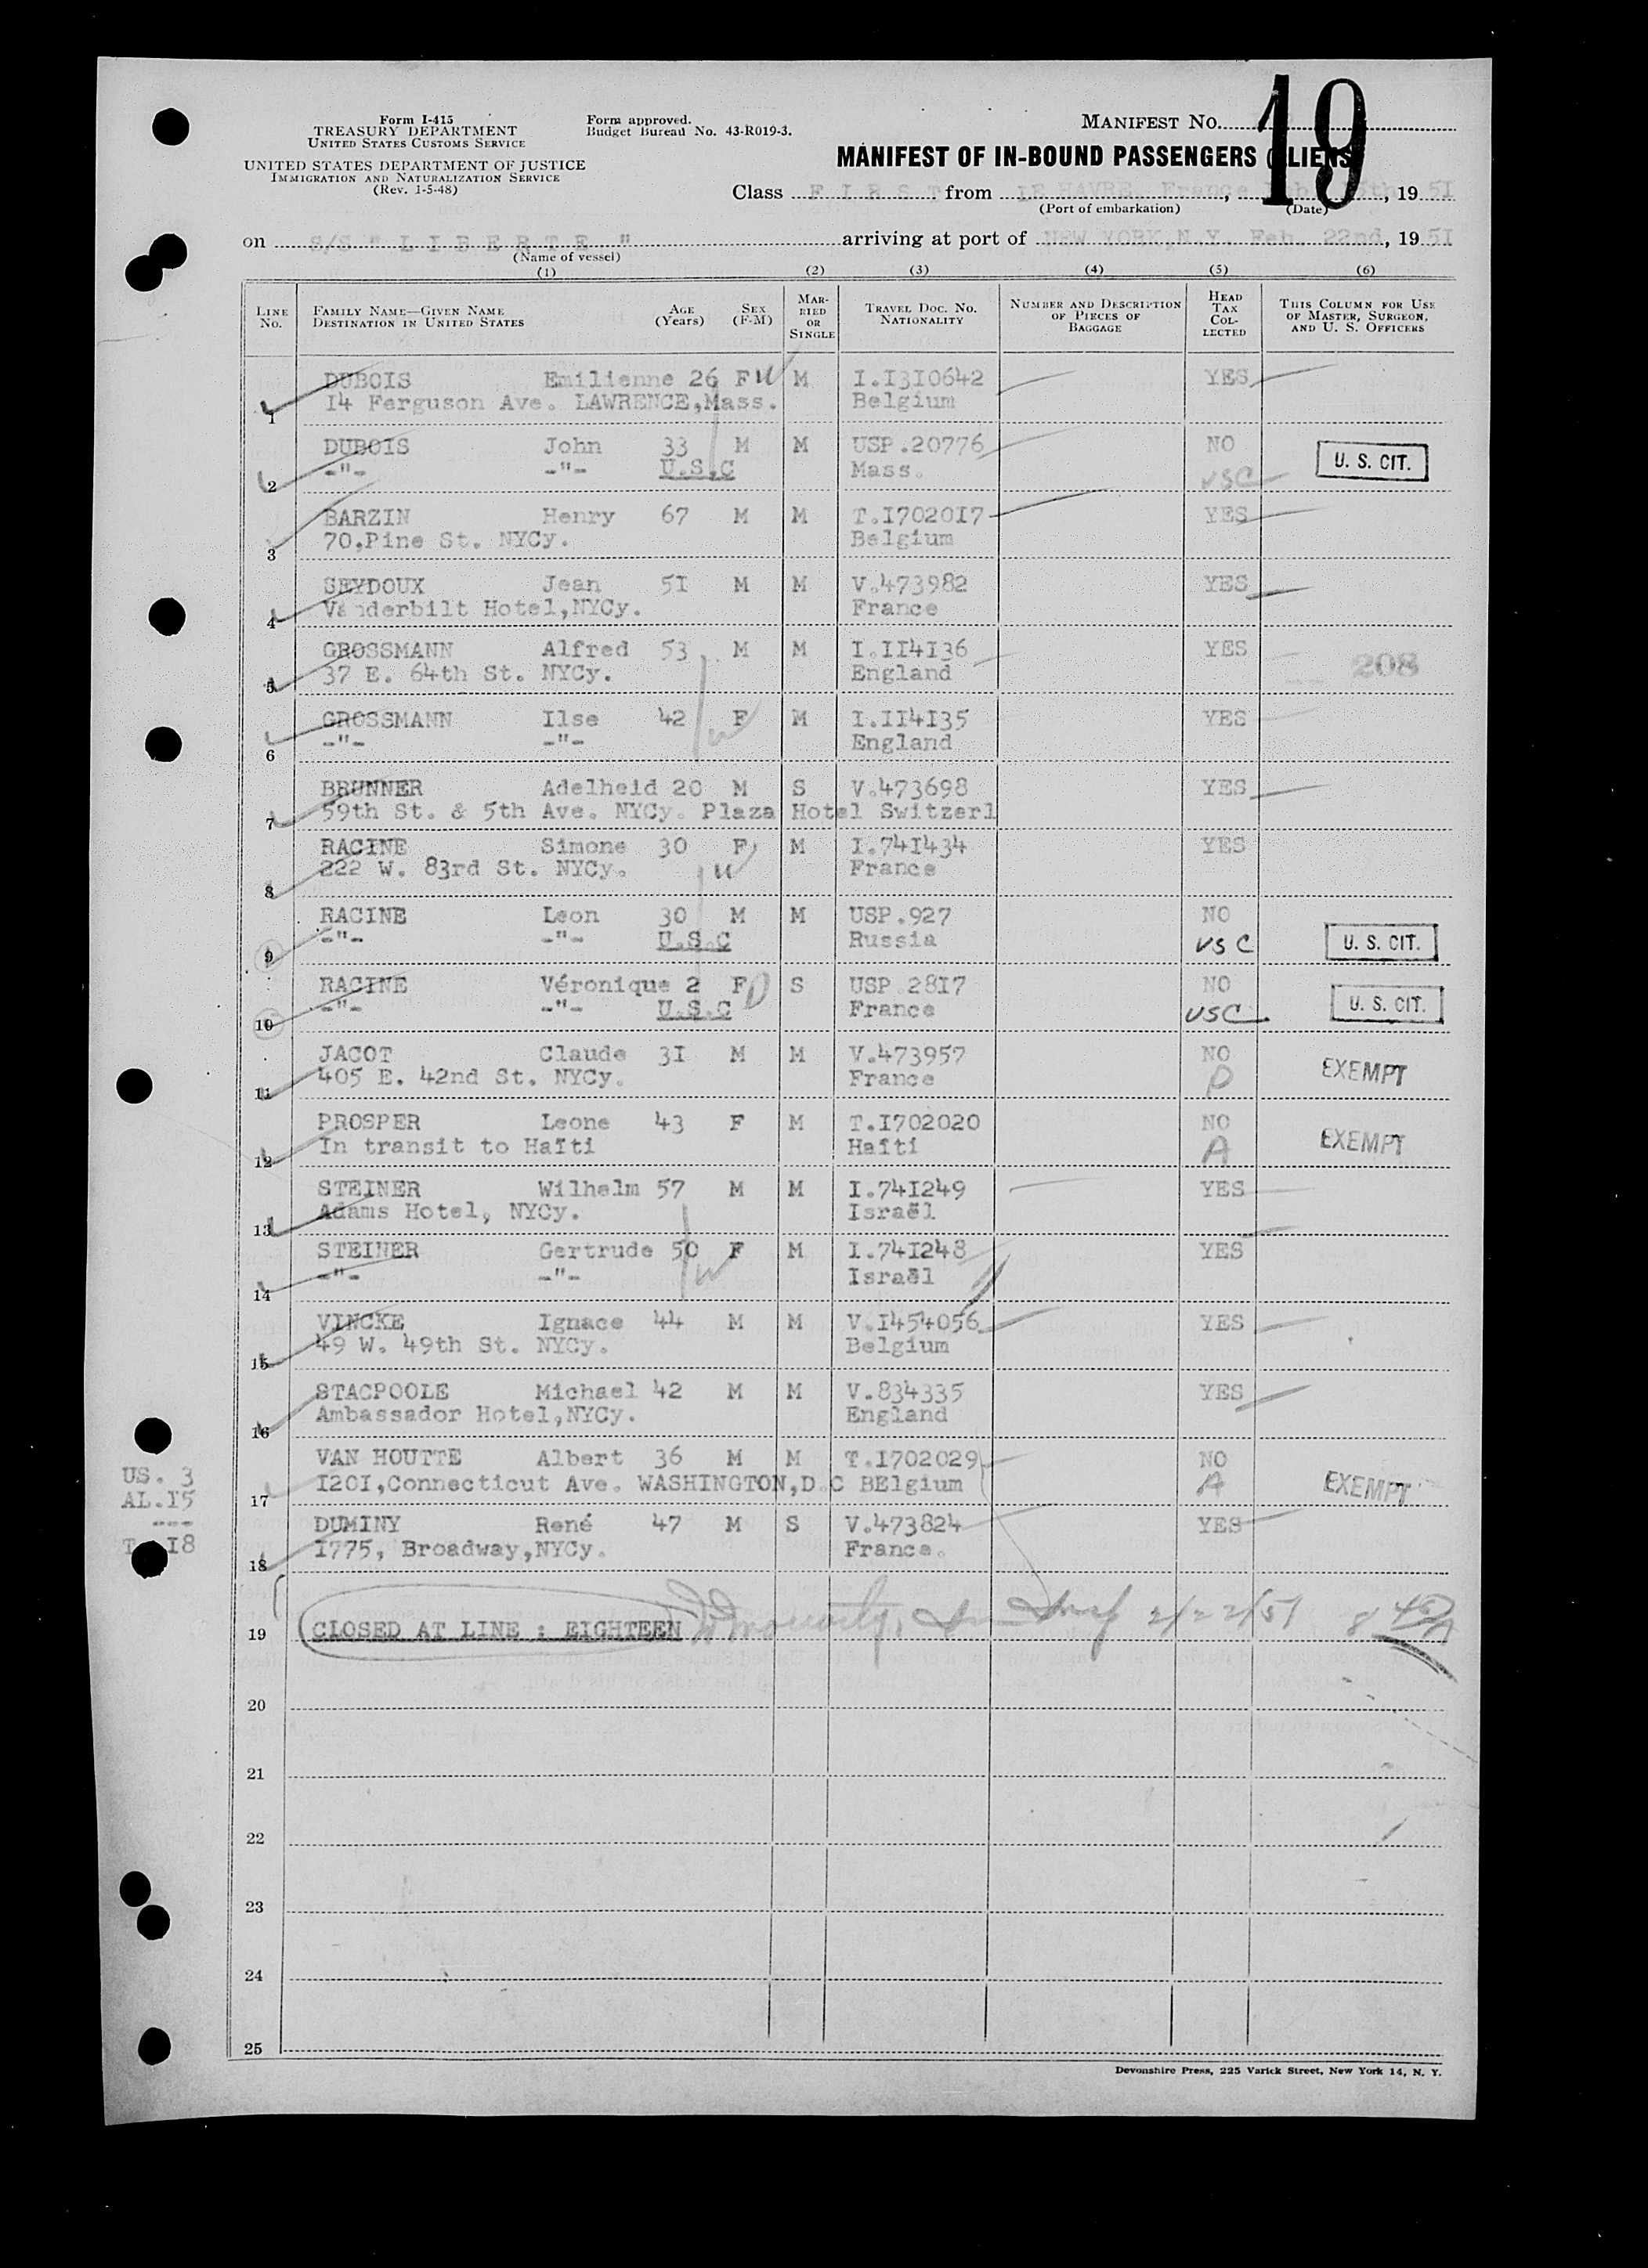 Form I-415
TREASURY DEPARTMENT
UNITED STATES CUSTOMS SERVICE
UNITED STATES DEPARTMENT OF JUSTICE
IMMIGRATION AND NATURALIZATION SERVICE
(Rev. 1-5-48)
Form approved.
Budget Bureau No. 43-R019-3.
MANIFEST NO. 19
MANIFEST OF IN-BOUND PASSENGERS (ALIENS)
Class F I R S T from LE HAVRE, France, 1951
(Port of embarkation) (Date)
on S/S " L I B E R T E " arriving at port of NEW YORK,N.Y. Feb. 22nd, 1951
(Name of vessel)
(1) (2) (3) (4) (5) (6)
LINE NO. FAMILY NAME—GIVEN NAME DESTINATION IN UNITED STATES AGE (Years) SEX (F-M) MARRIED OR SINGLE TRAVEL DOC. NO. NATIONALITY NUMBER AND DESCRIPTION OF PIECES OF BAGGAGE HEAD TAX COLLECTED THIS COLUMN FOR USE OF MASTER, SURGEON, AND U. S. OFFICERS
DUBOIS Emilienne 26 F W M I.I3I0642 YES
1 I4 Ferguson Ave. LAWRENCE,Mass. Belgium
DUBOIS John 33 M M USP.20776 NO U. S. CIT.
2 -"- -"- U.S.C Mass. USC
BARZIN Henry 67 M M T.I7020I7 YES
3 70,Pine St. NYCy. Belgium
SEYDOUX Jean 5I M M V.473982 YES
4 Vanderbilt Hotel,NYCy. France
GROSSMANN Alfred 53 M M I.II4I36 YES
5 37 E. 64th St. NYCy. England 208
GROSSMANN Ilse 42 F W M I.II4I35 YES
6 -"- -"- England
BRUNNER Adelheid 20 M S V.473698 YES
7 59th St. & 5th Ave. NYCy. Plaza Hotel Switzerl
RACINE Simone 30 F M I.74I434 YES
8 222 W. 83rd St. NYCy. W France
RACINE Leon 30 M M USP.927 NO
9 -"- -"- U.S.C Russia USC U. S. CIT.
RACINE Véronique 2 F D S USP 28I7 NO
10 -"- -"- U.S.C France USC U. S. CIT.
JACOT Claude 3I M M V.473957 NO
11 405 E. 42nd St. NYCy. France P EXEMPT
PROSPER Leone 43 F M T.I702020 NO
12 In transit to Haïti Haïti A EXEMPT
STEINER Wilhelm 57 M M I.74I249 YES
13 Adams Hotel, NYCy. Israël
STEINER Gertrude 50 F M I.74I248 YES
14 -"- -"- W Israël
VINCKE Ignace 44 M M V.I454056 YES
15 49 W. 49th St. NYCy. Belgium
STACPOOLE Michael 42 M M V.834335 YES
16 Ambassador Hotel,NYCy. England
VAN HOUTTE Albert 36 M M T.I702029 NO
17 I20I,Connecticut Ave. WASHINGTON,D.C BElgium A EXEMPT
DUMINY René 47 M S V.473824 YES
18 I775, Broadway,NYCy. France.
US. 3
AL.I5
---
T. I8
19 CLOSED AT LINE : EIGHTEEN 2/22/51
20
21
22
23
24
25
Devonshire Press, 225 Varick Street, New York 14, N. Y.